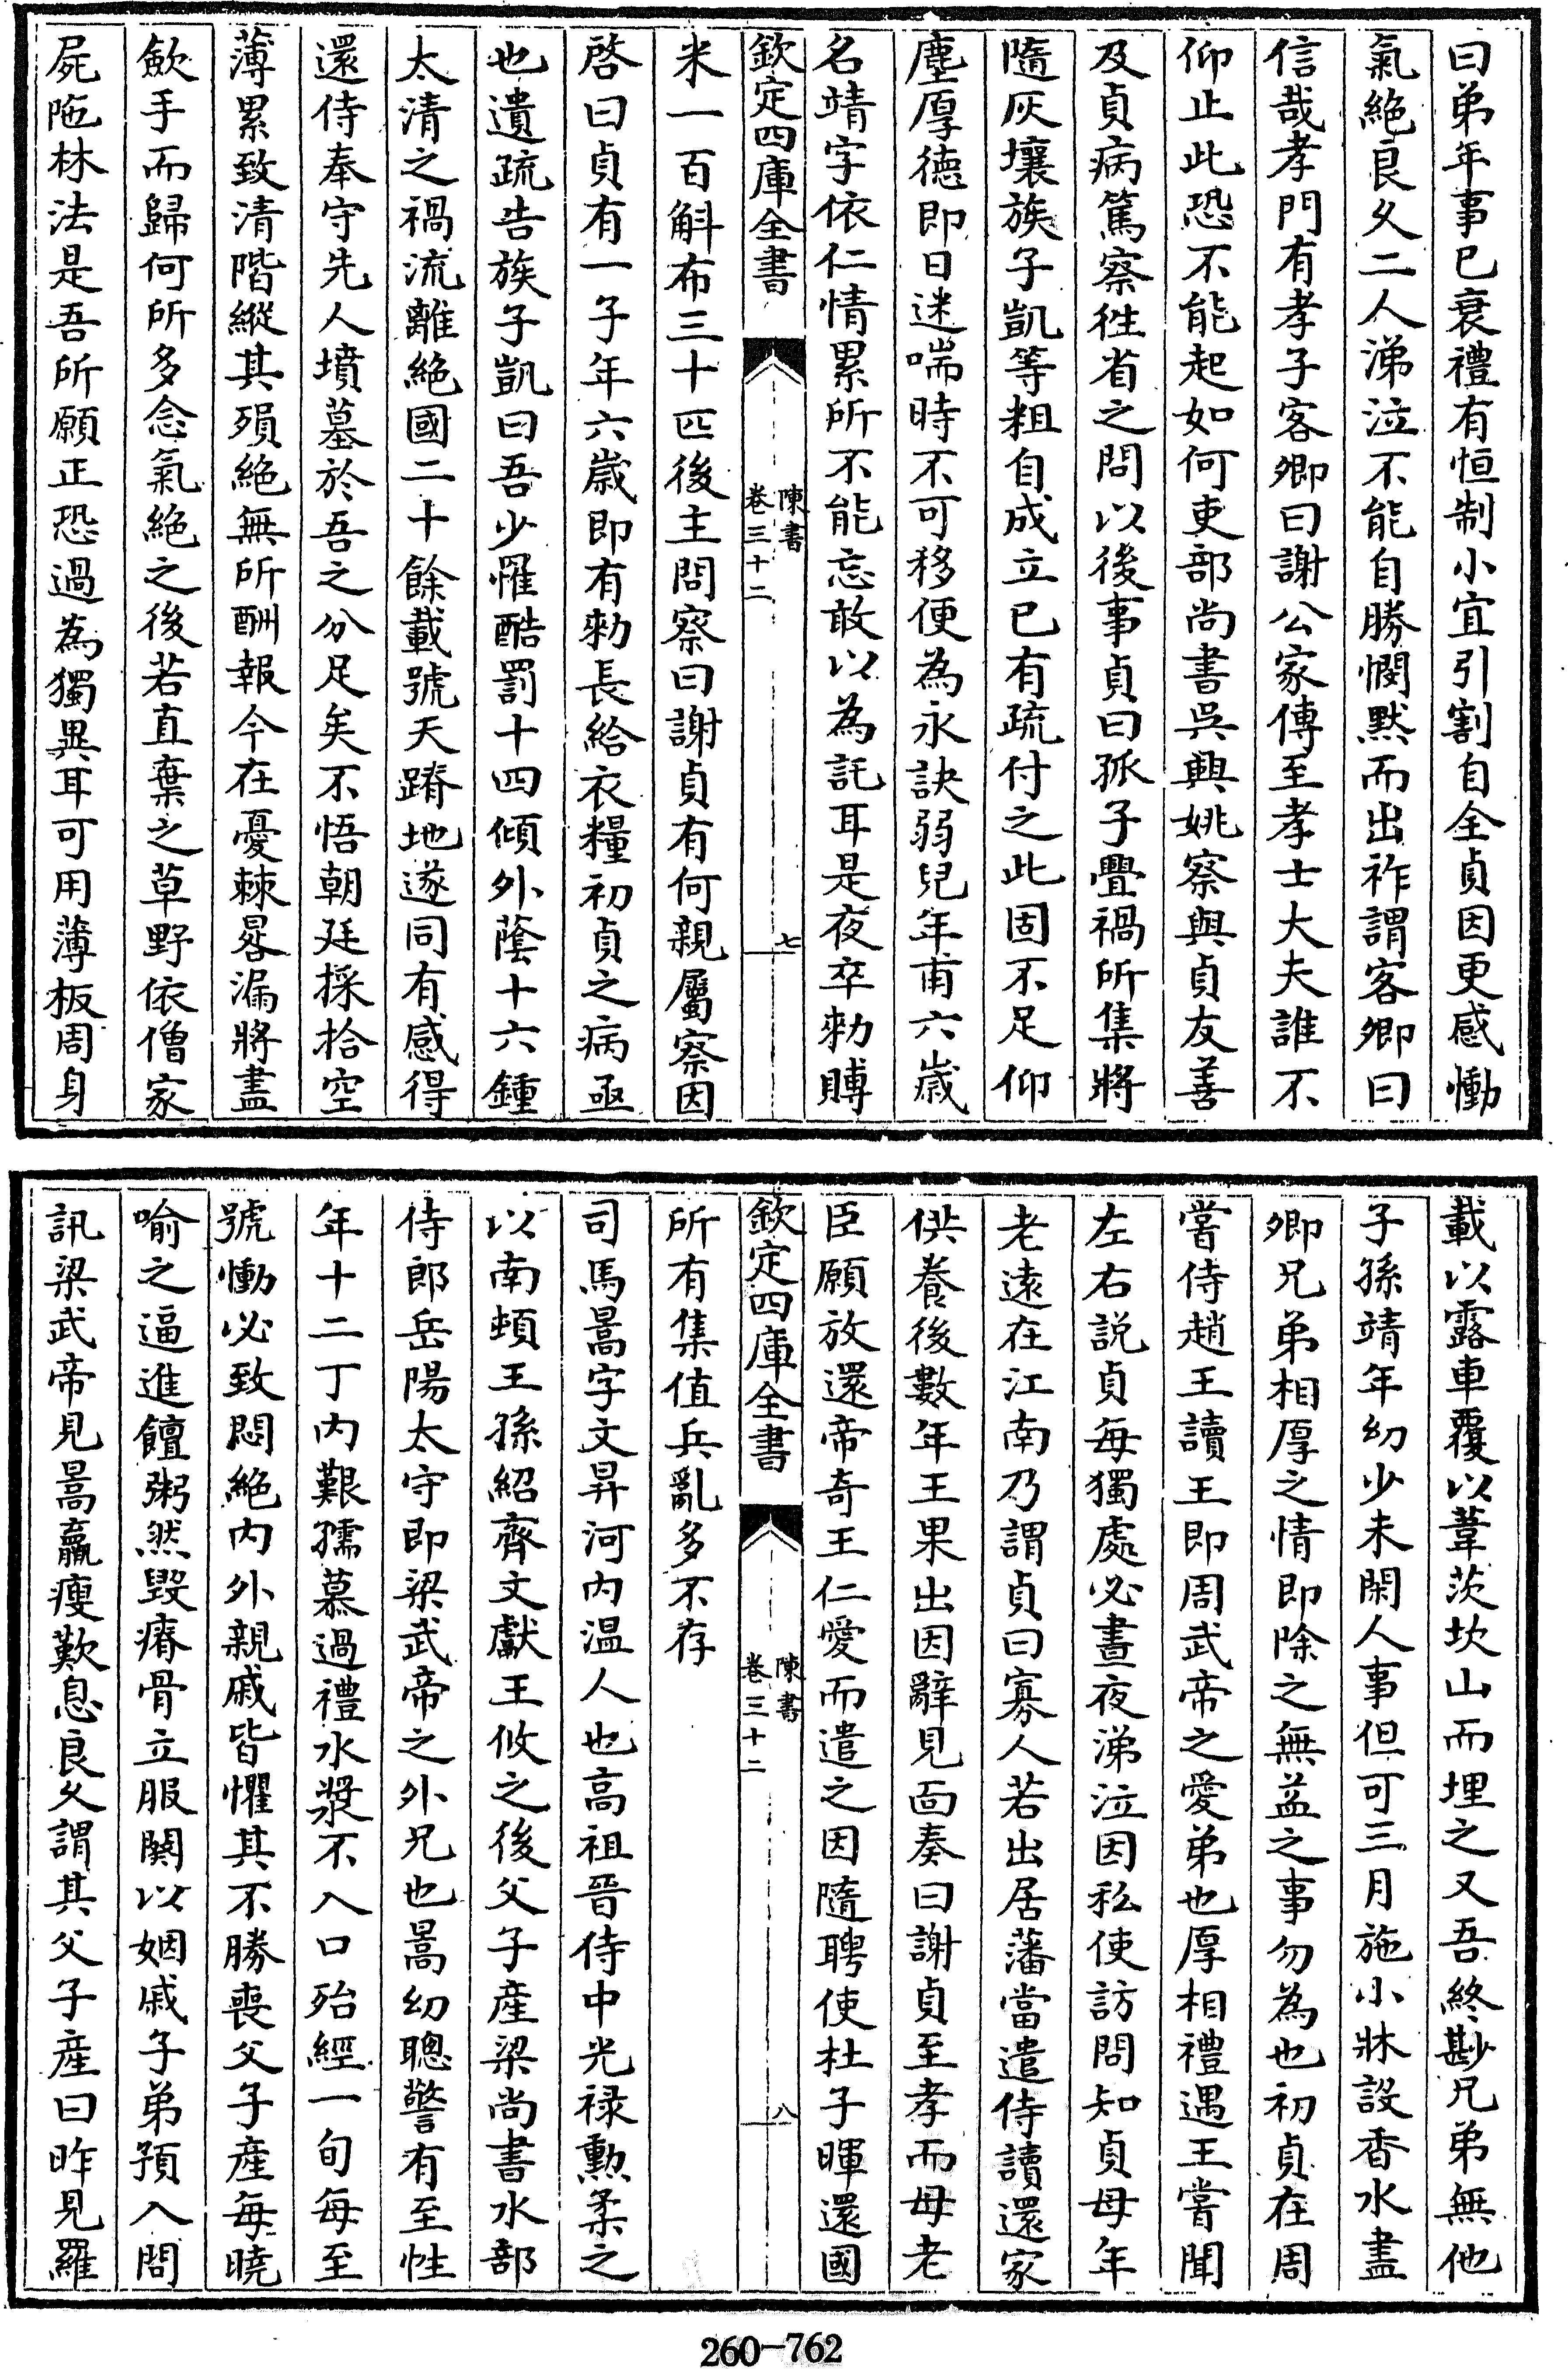 曰弟年事已衰禮有恒制小宜引割自全貞因更感慟
氣絶良乆二人涕泣不能自勝憫黙而出祚謂客卿曰
信哉孝門有孝子客卿曰謝公家傳至孝士大夫誰不
仰止此恐不能起如何吏部尚書吳興姚察與貞友善
及貞病篤察徃省之問以後事貞曰孤子疊禍所集將
隨灰壤族子凱等粗自成立已有疏付之此固不足仰
塵厚德即日迷喘時不可移便為永訣弱兒年甫六歲
名靖字依仁情累所不能忘敢以為託耳是夜卒勅賻
欽定四庫全書
陳書
卷三十二
七
米一百斛布三十匹後主問察曰謝貞有何親屬察因
啓曰貞有一子年六歲即有勅長給衣糧初貞之病亟
也遺疏告族子凱曰吾少罹酷罰十四傾外蔭十六鍾
太清之禍流離絶國二十餘載號天蹐地遂同有感得
還侍奉守先人墳墓於吾之分足矣不悟朝廷採拾空
薄累致清階縱其殞絶無所酬報今在憂棘晷漏將盡
歛手而歸何所多念氣絶之後若直棄之草野依僧家
屍陁林法是吾所願正恐過為獨異耳可用薄板周身
載以露車覆以葦茨坎山而埋之又吾終尠兄弟無他
子孫靖年幼少未閑人事但可三月施小牀設香水盡
卿兄弟相厚之情即除之無益之事勿為也初貞在周
嘗侍趙王讀王即周武帝之愛弟也厚相禮遇王嘗聞
左右説貞每獨處必晝夜涕泣因私使訪問知貞母年
老遠在江南乃謂貞曰寡人若出居藩當遣侍讀還家
供養後數年王果出因辭見面奏曰謝貞至孝而母老
臣願放還帝奇王仁愛而遣之因隨聘使杜子暉還國
欽定四庫全書
陳書
卷三十二
八
所有集值兵亂多不存
司馬暠字文昇河内温人也高祖晉侍中光禄勲柔之
以南頓王孫紹齊文獻王攸之後父子産梁尚書水部
侍郎岳陽太守即梁武帝之外兄也暠幼聰警有至性
年十二丁内艱孺慕過禮水漿不入口殆經一旬每至
號慟必致悶絶内外親戚皆懼其不勝喪父子産每曉
喻之逼進饘粥然毀瘠骨立服闋以姻戚子弟預入問
訊梁武帝見暠羸瘦歎息良乆謂其父子産曰昨見羅
260-762